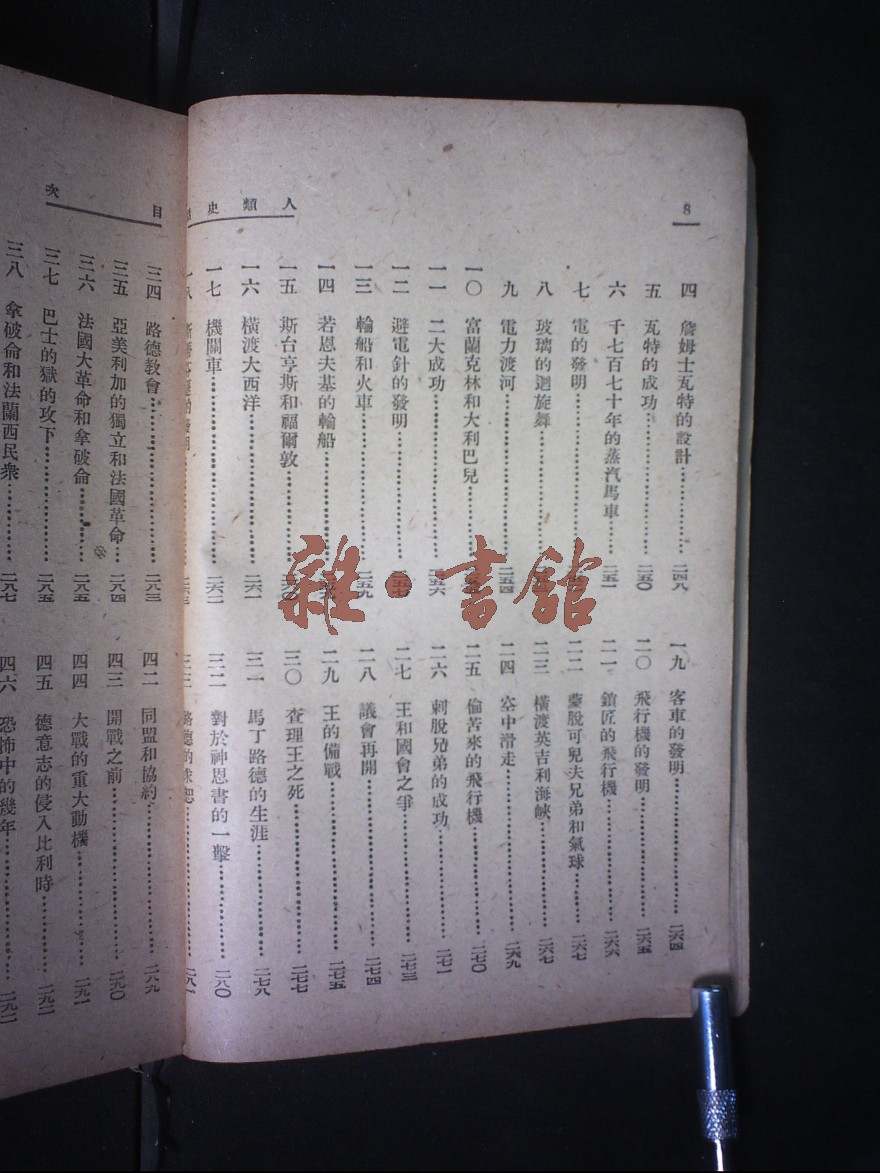 8
人類史
四 詹姆士瓦特的設計 二四八
五 瓦特的成功 二五〇
六 千七百七十年的蒸汽馬車 二五一
七 電的發明
八 玻璃的迴旋舞
九 電力渡河 二五四
一〇 富蘭克林和大利巴兒
一一 二大成功 二五六
一二 避電針的發明 二五七
一三 輪船和火車 二五九
一四 若恩夫基的輪船
一五 斯台亨斯和福爾敦
一六 橫渡大西洋 二六一
一七 機關車 二六二
一八 發明
一九 客車的發明 二六四
二〇 飛行機的發明 二六五
二一 鎖匠的飛行機 二六六
二二 蒙脫可兒夫兄弟和氣球 二六七
二三 橫渡英吉利海峽 二六七
二四 空中滑走 二六九
二五 倫苦來的飛行機 二七〇
二六 刺脫兄弟的成功 二七一
二七 王和國會之爭 二七三
二八 議會再開 二七四
二九 王的備戰 二七五
三〇 查理王之死 二七七
三一 馬丁路德的生涯 二七八
三二 對於神恩書的一擊 二八〇
三三 路德的 二八一
目次
三四 路德教會 二八三
三五 亞美利加的獨立和法國革命 二八四
三六 法國大革命和拿破侖 二八五
三七 巴士的獄的攻下 二八五
三八 拿破侖和法蘭西民衆 二八七
四二 同盟和協約 二八九
四三 開戰之前 二九〇
四四 大戰的重大動機 二九一
四五 德意志的侵入比利時 二九二
四六 恐怖中的幾年 二九二
雜·書館